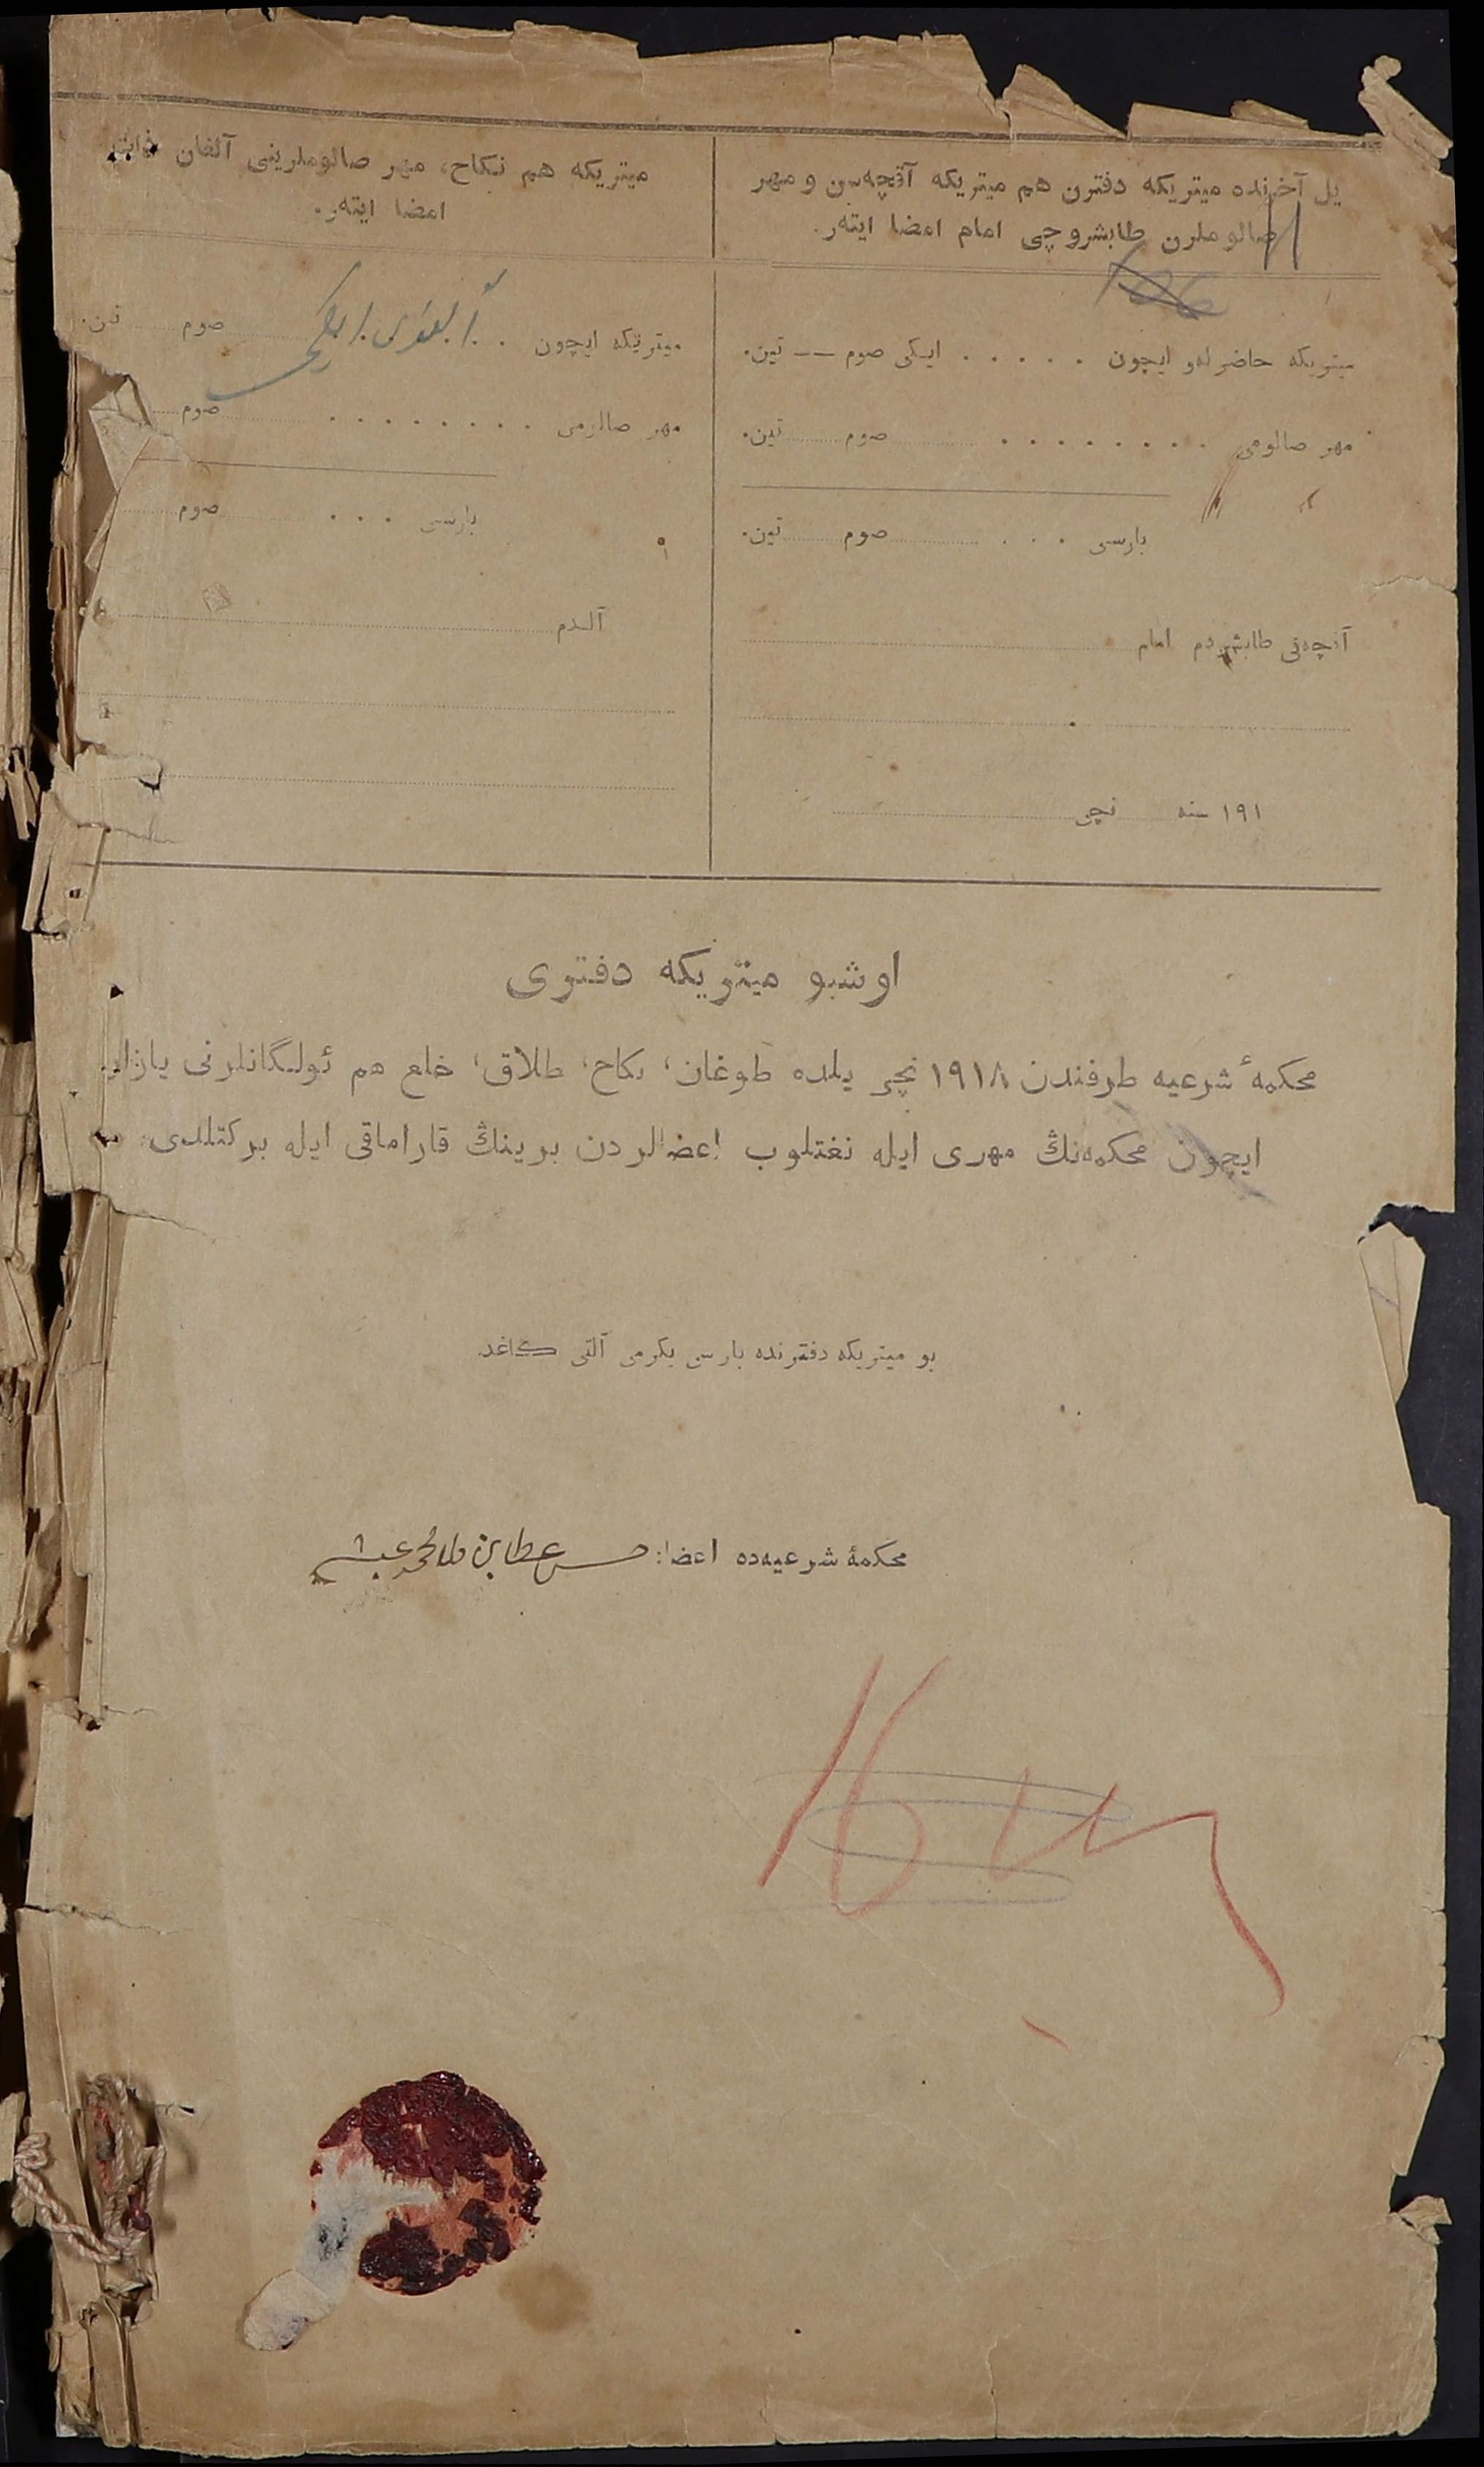 یل آخرنده میتریکه دفترن هم میتریکه آقچه‌سن و مهر
صالوملرن طابشروچی امام امضا ایته‌ر.
میتریکه حاضرله‌و ایچون . . . . . ایکی صوم —— تین.
مهر صالومی . . . . . . . . صوم تین.
بارسی . . . صوم تین.
آقچه‌نی طابشردم امام
۱۹۱ سنه نچی
میتریکه هم نکاح، مهر صالوملرینی آلغان
امضا ایته‌ر.
میتریکه ایچون . . صوم تین.
مهر صالومی . . . . . . . . صوم
بارسی . . . صوم
آلدم
اوشبو میتریکه دفتری
محکمهٔ شرعیه طرفندن ۱۹۱۸ نچی یلده طوغان، نکاح، طلاق، خلع هم ئولگانلرنی یازار
ایچون محکمه‌نڭ مهری ایله نغتلوب اعضالردن برینڭ قاراماقی ایله برکتلدی.
بو میتریکه دفترنده بارسی یکرمی آلتی کاغد.
محکمهٔ شرعیه‌ده اعضا: